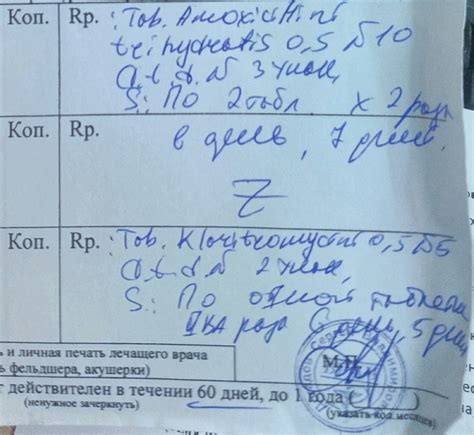 Коп. Rp. : Tab. Amoxicillini
trihydratis 0,5 №10
D.t.d. N 3 упак,
S.: По 2 табл. х 2 раза
Коп. Rp. в день, 7 дней.
Z
Коп. Rp. : Tab. Klaritromycini 0,5 №5
D.t.d. N 2 упак,
S: По одной таблетке
два раза в день, 5 дней
ь и личная печать лечащего врача
ь фельдшера, акушерки)
М.П.
т действителен в течении 60 дней, до 1 года (
(ненужное зачеркнуть) (указать кол. месяцев)